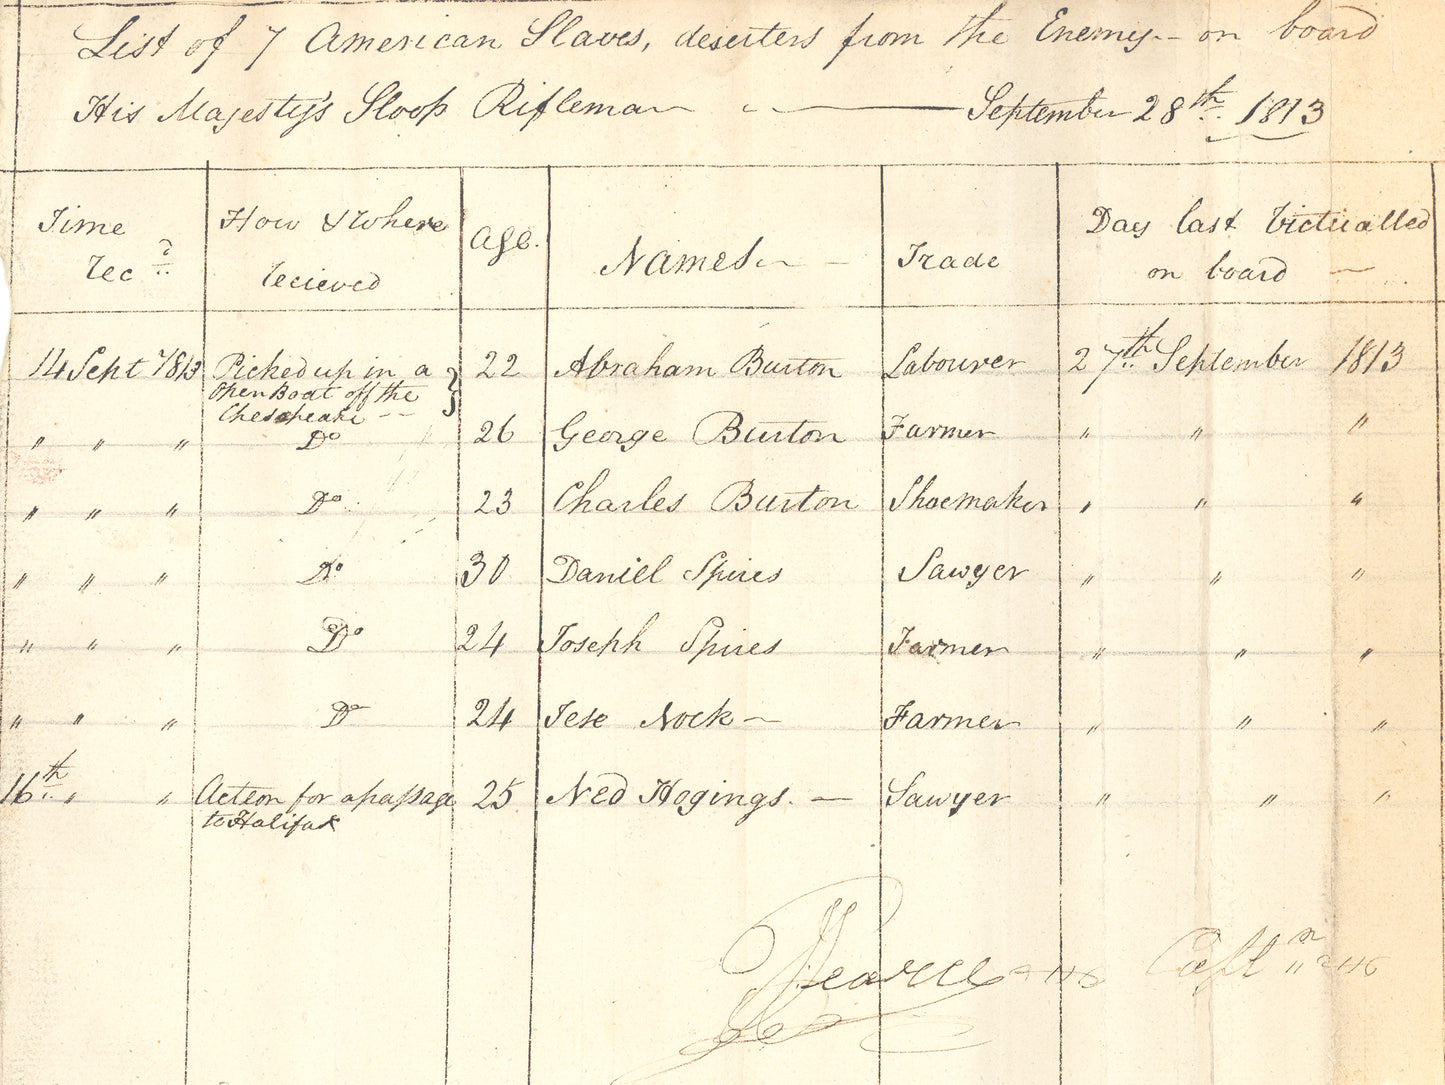 List of 7 American Slaves, deserters from the Enemy - on board
His Majesty's Sloop Rifleman — September 28th 1813
Time Recd
How & Where recieved
Age.
Names
Trade
Day last Victualled on board
14 Sept 1813 Picked up in a open Boat off the Chesapeake 22 Abraham Burton Labourer 27th September 1813
" " " Do 26 George Burton Farmer " " "
" " " Do 23 Charles Burton Shoemaker " " "
" " " Do 30 Daniel Spires Sawyer " " "
" " " Do 24 Joseph Spires Farmer " " "
" " " Do 24 Jese Nock Farmer " " "
16th " " for a passage to Halifax 25 Ned Hogings. Sawyer " " "
Pearce Captn